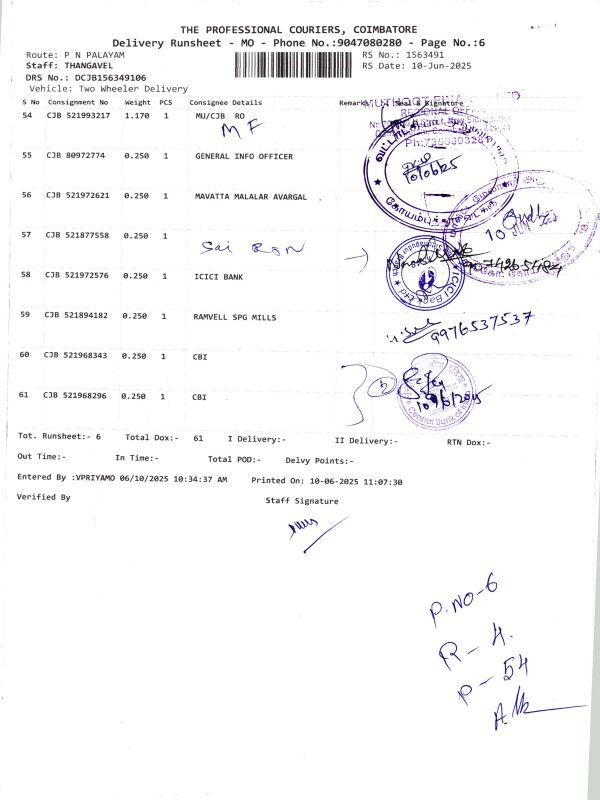 THE PROFESSIONAL COURIERS, COIMBATORE
Delivery Runsheet - MO - Phone No.:9047080280 - Page No.:6
Route: P N PALAYAM RS No.: 1563491
Staff: THANGAVEL RS Date: 10-Jun-2025
DRS No.: DCJB156349106
Vehicle: Two Wheeler Delivery
S No Consignment No Weight PCS Consignee Details Remarks Seal & Signature
MUTHOOT
REGIONAL OFFICE
54 CJB 521993217 1.170 1 MU/CJB RO
MF
55 CJB 80972774 0.250 1 GENERAL INFO OFFICER
10/06/25
56 CJB 521972621 0.250 1 MAVATTA MALALAR AVARGAL
57 CJB 521877558 0.250 1
Sai
58 CJB 521972576 0.250 1 ICICI BANK
ICICI Bank Ltd
59 CJB 521894182 0.250 1 RAMVELL SPG MILLS
9976537537
60 CJB 521968343 0.250 1 CBI
61 CJB 521968296 0.250 1 CBI
2
10/6/2025
Central Bank of
Tot. Runsheet:- 6 Total Dox:- 61 I Delivery:- II Delivery:- RTN Dox:-
Out Time:- In Time:- Total POD:- Delvy Points:-
Entered By :VPRIYAMO 06/10/2025 10:34:37 AM Printed On: 10-06-2025 11:07:30
Verified By Staff Signature
P.NO-6
R-4.
P-54